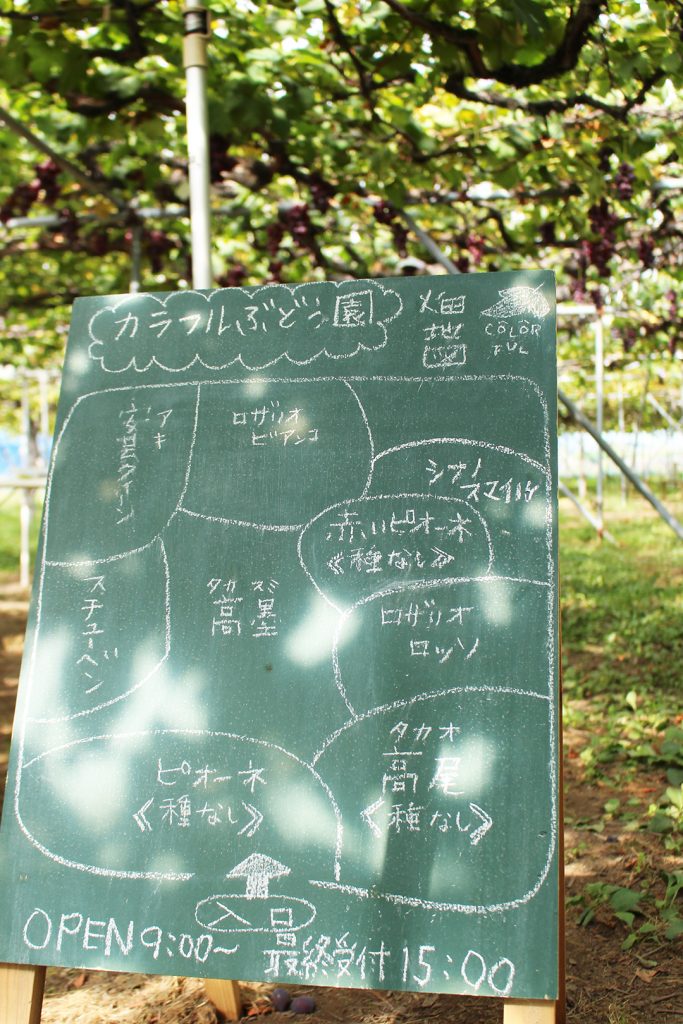 カラフルぶどう園
畑
地
図
COLOR
FUL
アキ
安芸クイーン
ロザリオ
ビアンコ
シナノ
スマイル
赤いピオーネ
《種なし》
スチューベン
タカ スミ
高墨
ロザリオ
ロッソ
ピオーネ
《種なし》
タカオ
高尾
《種なし》
入口
OPEN 9:00~ 最終受付 15:00